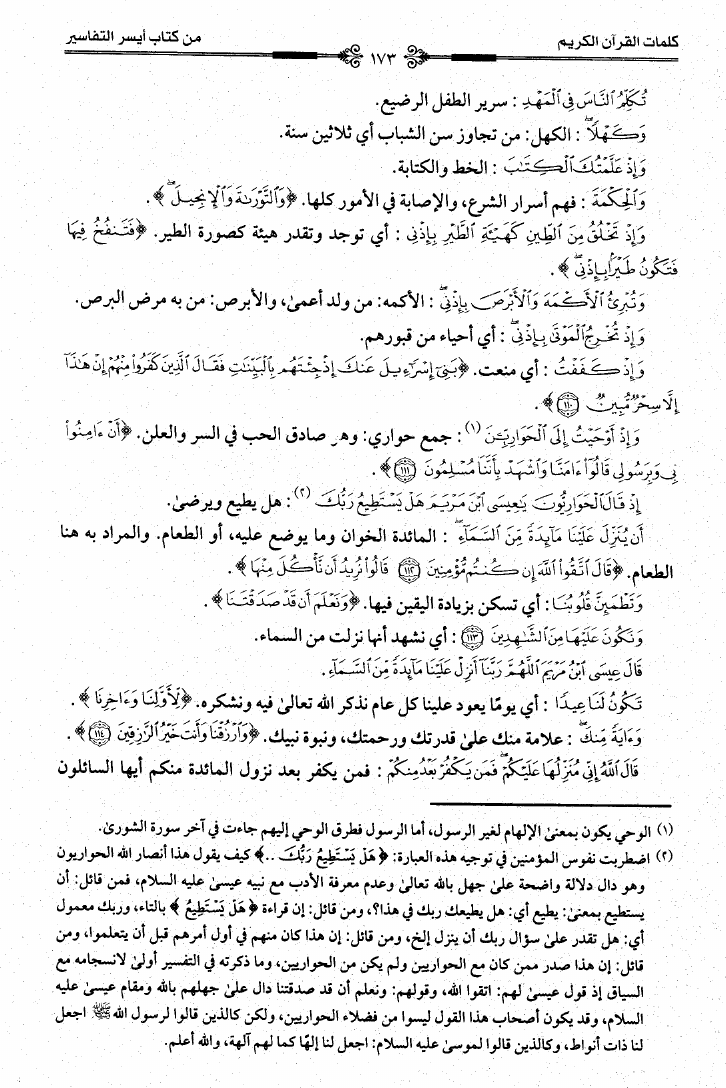 كلمات القرآن الكريم ١٧٣ من كتاب أيسر التفاسير
تُكَلِّمُ ٱلنَّاسَ فِي ٱلْمَهْدِ : سرير الطفل الرضيع.
وَكَهْلًا ۖ : الكهل: من تجاوز سن الشباب أي ثلاثين سنة.
وَإِذْ عَلَّمْتُكَ ٱلْكِتَٰبَ : الخط والكتابة.
وَٱلْحِكْمَةَ : فهم أسرار الشرع، والإصابة في الأمور كلها. ﴿وَٱلتَّوْرَىٰةَ وَٱلْإِنجِيلَ ۖ﴾.
وَإِذْ تَخْلُقُ مِنَ ٱلطِّينِ كَهَيْـَٔةِ ٱلطَّيْرِ بِإِذْنِي : أي توجد وتقدر هيئة كصورة الطير. ﴿فَتَنفُخُ فِيهَا
فَتَكُونُ طَيْرًۢا بِإِذْنِي ۖ﴾.
وَتُبْرِئُ ٱلْأَكْمَهَ وَٱلْأَبْرَصَ بِإِذْنِي ۖ : الأكمه: من ولد أعمىٰ، والأبرص: من به مرض البرص.
وَإِذْ تُخْرِجُ ٱلْمَوْتَىٰ بِإِذْنِي ۖ : أي أحياء من قبورهم.
وَإِذْ كَفَفْتُ : أي منعت. ﴿بَنِيٓ إِسْرَٰٓءِيلَ عَنكَ إِذْ جِئْتَهُم بِٱلْبَيِّنَٰتِ فَقَالَ ٱلَّذِينَ كَفَرُوا۟ مِنْهُمْ إِنْ هَٰذَآ
إِلَّا سِحْرٌ مُّبِينٌ ١١٠﴾.
وَإِذْ أَوْحَيْتُ إِلَى ٱلْحَوَارِيِّـۧنَ (١): جمع حواري: وهو صادق الحب في السر والعلن. ﴿أَنْ ءَامِنُوا۟
بِي وَبِرَسُولِي قَالُوٓا۟ ءَامَنَّا وَٱشْهَدْ بِأَنَّنَا مُسْلِمُونَ ١١١﴾.
إِذْ قَالَ ٱلْحَوَارِيُّونَ يَٰعِيسَى ٱبْنَ مَرْيَمَ هَلْ يَسْتَطِيعُ رَبُّكَ (٢): هل يطيع ويرضىٰ.
أَن يُنَزِّلَ عَلَيْنَا مَآئِدَةً مِّنَ ٱلسَّمَآءِ ۖ : المائدة الخوان وما يوضع عليه، أو الطعام. والمراد به هنا
الطعام. ﴿قَالَ ٱتَّقُوا۟ ٱللَّهَ إِن كُنتُم مُّؤْمِنِينَ ١١٢ قَالُوا۟ نُرِيدُ أَن نَّأْكُلَ مِنْهَا﴾.
وَتَطْمَئِنَّ قُلُوبُنَا : أي تسكن بزيادة اليقين فيها. ﴿وَنَعْلَمَ أَن قَدْ صَدَقْتَنَا﴾.
وَنَكُونَ عَلَيْهَا مِنَ ٱلشَّٰهِدِينَ ١١٣ : أي نشهد أنها نزلت من السماء.
قَالَ عِيسَى ٱبْنُ مَرْيَمَ ٱللَّهُمَّ رَبَّنَآ أَنزِلْ عَلَيْنَا مَآئِدَةً مِّنَ ٱلسَّمَآءِ.
تَكُونُ لَنَا عِيدًا : أي يومًا يعود علينا كل عام نذكر الله تعالىٰ فيه ونشكره. ﴿لِّأَوَّلِنَا وَءَاخِرِنَا﴾.
وَءَايَةً مِّنكَ ۖ : علامة منك علىٰ قدرتك ورحمتك، ونبوة نبيك. ﴿وَٱرْزُقْنَا وَأَنتَ خَيْرُ ٱلرَّٰزِقِينَ ١١٤﴾.
قَالَ ٱللَّهُ إِنِّي مُنَزِّلُهَا عَلَيْكُمْ ۖ فَمَن يَكْفُرْ بَعْدُ مِنكُمْ : فمن يكفر بعد نزول المائدة منكم أيها السائلون
(١) الوحي يكون بمعنىٰ الإلهام لغير الرسول، أما الرسول فطرق الوحي إليهم جاءت في آخر سورة الشورىٰ.
(٢) اضطربت نفوس المؤمنين في توجيه هذه العبارة: ﴿هَلْ يَسْتَطِيعُ رَبُّكَ ..﴾ كيف يقول هذا أنصار الله الحواريون
وهو دال دلالة واضحة علىٰ جهل بالله تعالىٰ وعدم معرفة الأدب مع نبيه عيسىٰ عليه السلام، فمن قائل: أن
يستطيع بمعنىٰ: يطيع أي: هل يطيعك ربك في هذا؟، ومن قائل: إن قراءة ﴿هَلْ يَسْتَطِيعُ﴾ بالتاء، وربك معمول
أي: هل تقدر علىٰ سؤال ربك أن ينزل إلخ، ومن قائل: إن هذا كان منهم في أول أمرهم قبل أن يتعلموا، ومن
قائل: إن هذا صدر ممن كان مع الحواريين ولم يكن من الحواريين، وما ذكرته في التفسير أولىٰ لانسجامه مع
السياق إذ قول عيسىٰ لهم: اتقوا الله، وقولهم: ونعلم أن قد صدقتنا دال علىٰ جهلهم بالله ومقام عيسىٰ عليه
السلام، وقد يكون أصحاب هذا القول ليسوا من فضلاء الحواريين، ولكن كالذين قالوا لرسول الله ﷺ اجعل
لنا ذات أنواط، وكالذين قالوا لموسىٰ عليه السلام: اجعل لنا إلهًا كما لهم آلهة، والله أعلم.